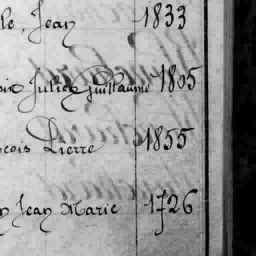 le, Jean 1833
Julien Guillaume 1805
cois Pierre 1855
n Jean Marie 1726